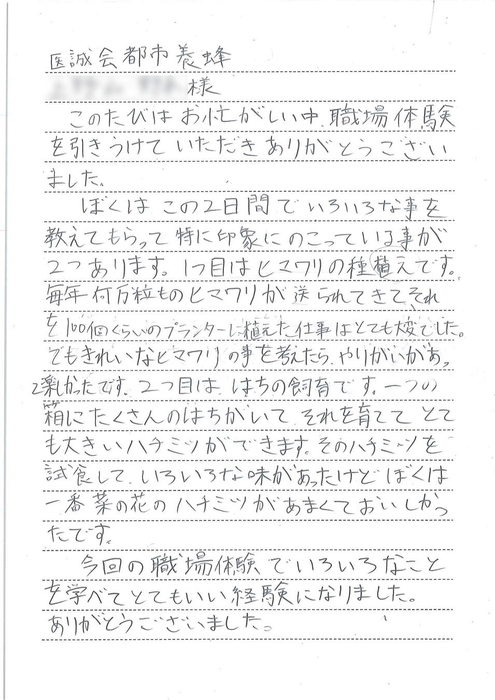 医誠会都市養蜂
様
このたびは お忙がしい中、職場体験
を引きうけて いただき ありがとうござい
ました。
ぼくは この2日間で いろいろな事を
教えてもらって 特に印象にのこっている事が
2つあります。1つ目はヒマワリの種植えです。
毎年何万粒ものヒマワリが送られてきてそれ
を100個くらいのプランターに植えた仕事はとても大変でした。
でもきれいなヒマワリの事を考えたら、やりがいがあっ
て楽しかったです。2つ目は、はちの飼育です。一つの
箱にたくさんのはちがいて、それを育てて とて
も大きいハチミツができます。そのハチミーツを
試食して、いろいろな味があったけど ぼくは
一番菜の花のハチミツがあまくておいしかっ
たです。
今回の職場体験でいろいろなこと
を学べてとてもいい経験になりました。
ありがとうございました。